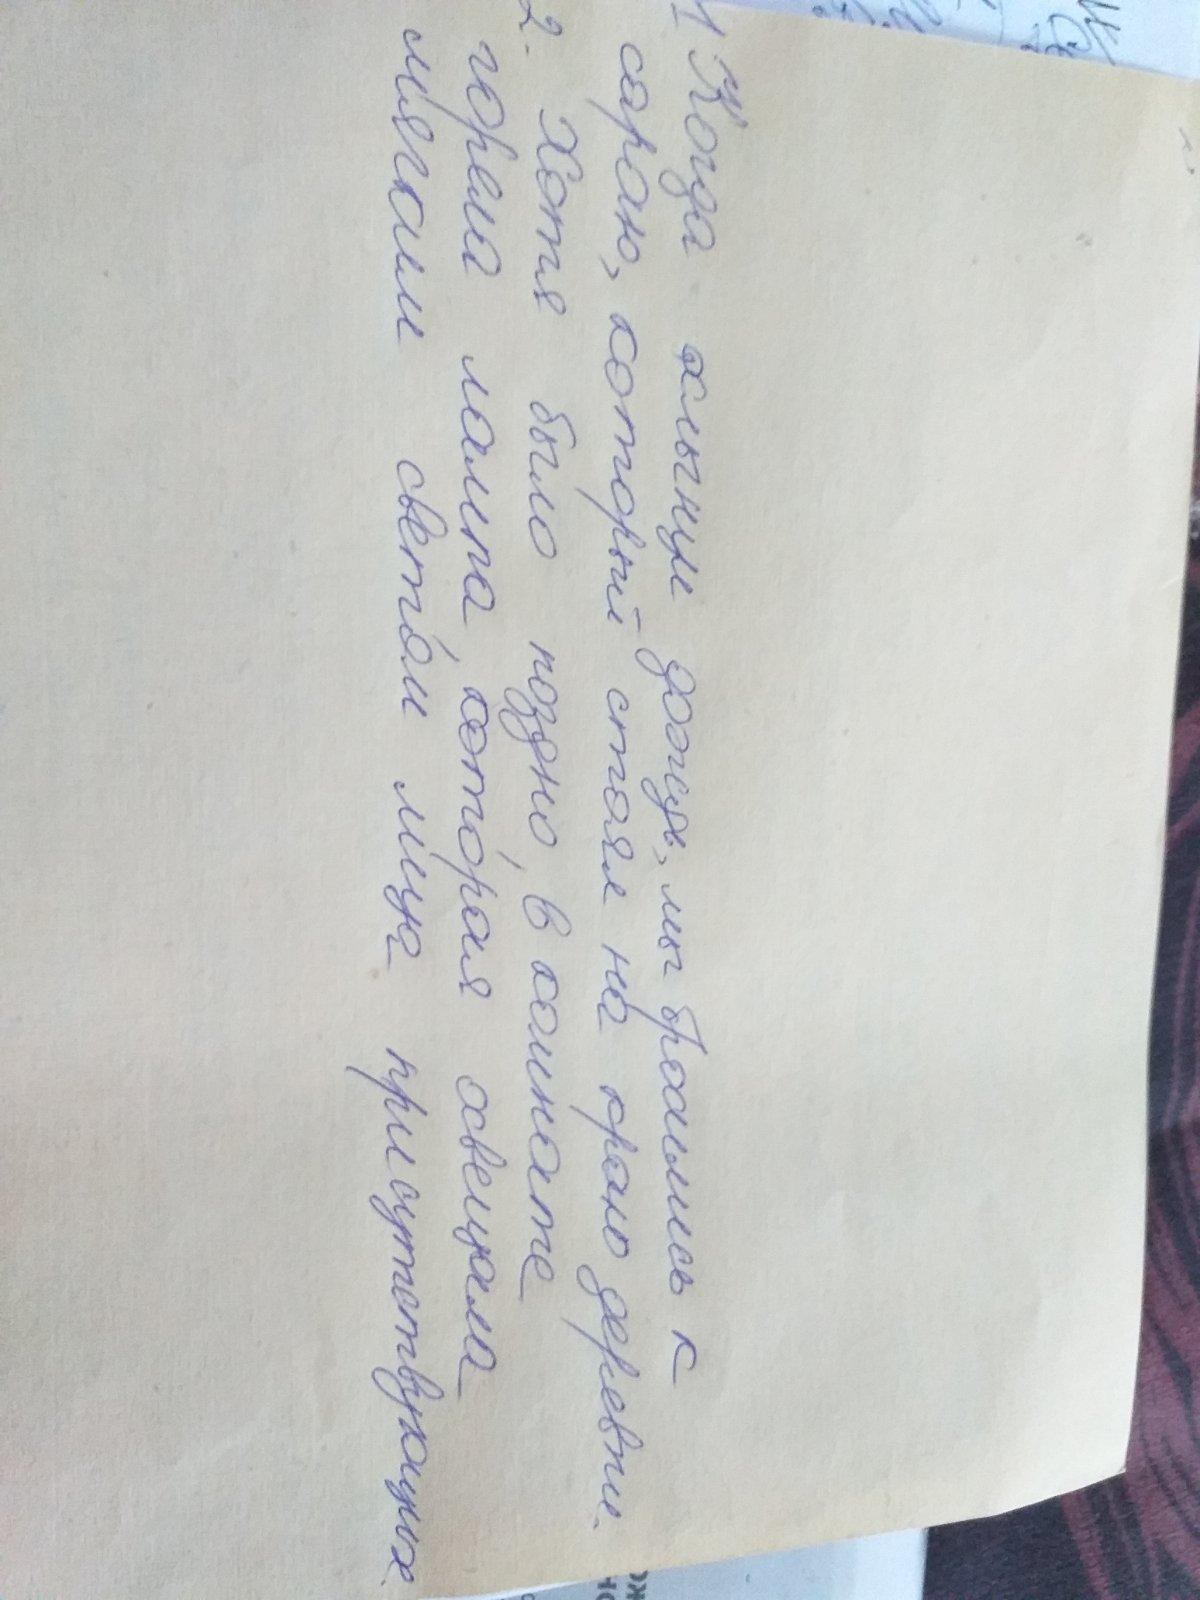 1 Когда хлынул дождь, мы бросились к
сараю, который стоял на краю деревни.
2. Хотя было поздно, в комнате
горела лампа, которая освещала
мягким светом лица присутствующих.